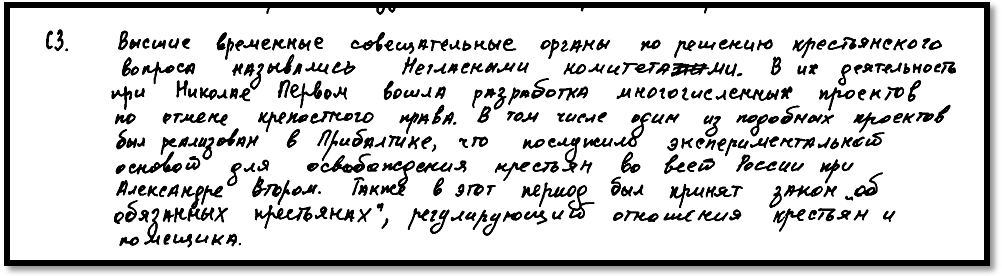 С3. Высшие временные совещательные органы по решению крестьянского
вопроса назывались Негласными комитетами. В их деятельность
при Николае Первом вошла разработка многочисленных проектов
по отмене крепостного права. В том числе один из подобных проектов
был реализован в Прибалтике, что послужило экспериментальной
основой для освобождения крестьян во всей России при
Александре Втором. Также в этот период был принят закон „об
обязанных крестьянах", регулирующий отношения крестьян и
помещика.